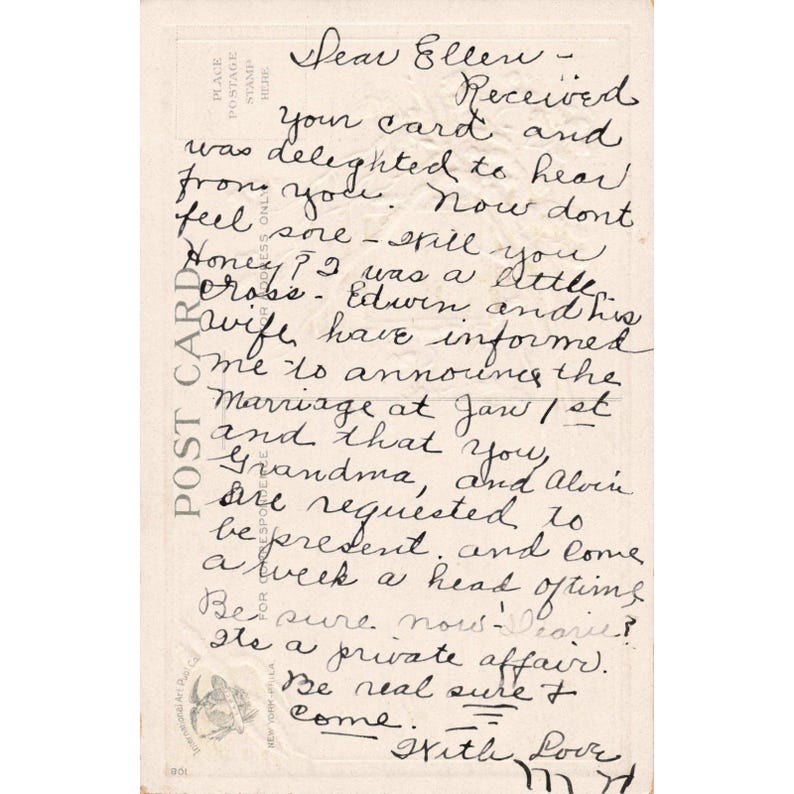 Dear Ellen -
Received
your card and
was deleghted to hear
from you. Now dont
feel sore - Will you
Honey? I was a little
cross - Edwin and his
wife, have informed
me to announce the
Marriage at Jan 1st
and that you,
Grandma, and Alvin
are requested to
be present. and come
a week a head of time
Be sure now - Dearie?
Its a private affair.
Be real sure &
come.
With Love
PLACE
POSTAGE
STAMP
HERE
POST CARD
FOR CORRESPONDENCE
FOR ADDRESS ONLY
International Art Publ. Co.
NEW YORK - PHILA.
108